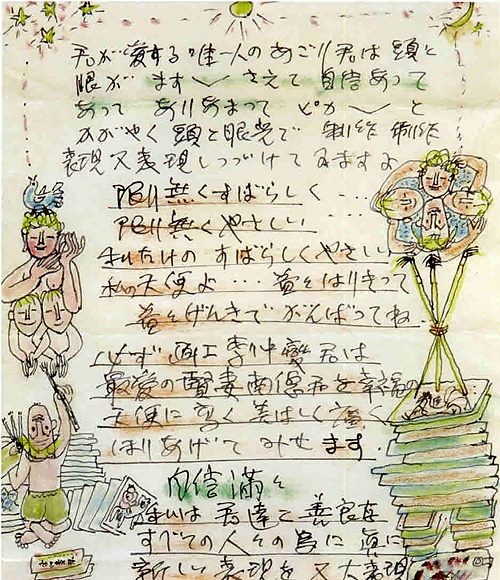 君が愛する唯一人のあごり君は頭と
眼がます〱さえて自信あって
あって ありあまって ピカ〱と
かがやく頭と眼光で 制作 制作
表現又表現しつづけてゐますよ
限り無くすばらしく・・・
限り無くやさしい・・・
私だけの すばらしくやさしい
私の天使よ・・・益々はりきって
益々げんきで がんばってね
必ず 画工李仲燮君は
最愛の賢妻南徳君を幸福の
天使に高く美はしく
ほりあげて みせます
自信満々
私は君達と善良な
すべての人々の為に真に
新しい表現を 又大表現